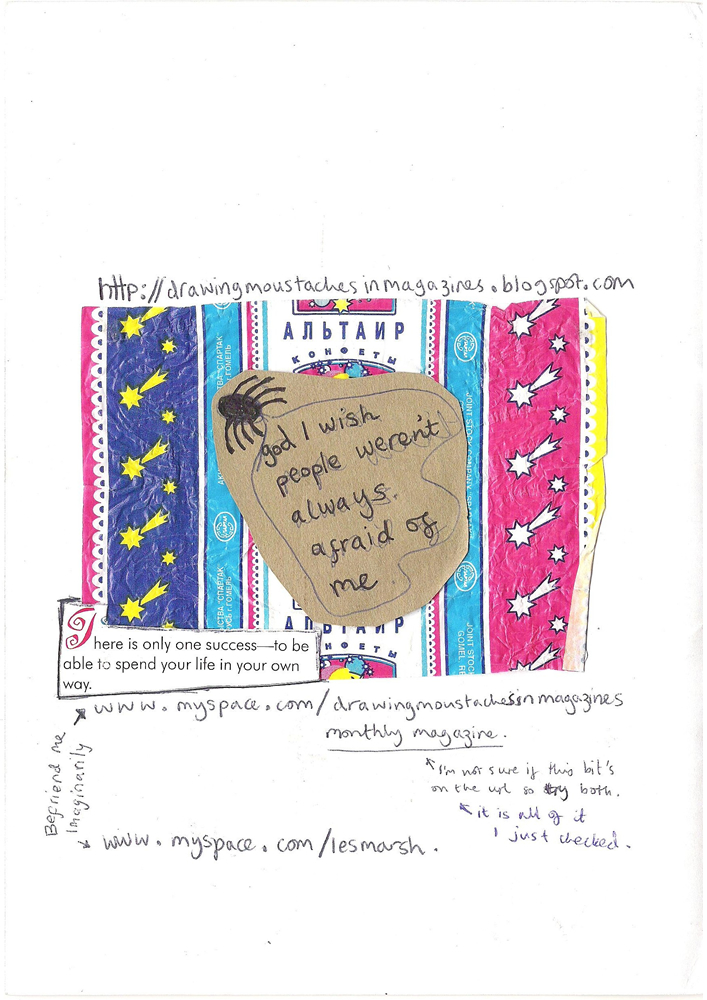 http://drawingmoustachesinmagazines.blogspot.com
АЛЬТАИР
КОНФЕТЫ
god I wish
people weren't
always.
afraid of
me.
АЛЬТАИР
КОНФЕТЫ
СПАРТАК
ГОМЕЛЬ
JOINT STOCK COMPANY
JOINT STOCK
GOMEL
There is only one success—to be
able to spend your life in your own
way.
www.myspace.com/drawingmoustachesinmagazines
monthly magazine.
I'm not sure if this bit's
on the url so try both.
it is all of it
I just checked.
Befriend me
Imaginarily
www.myspace.com/lesmarsh.